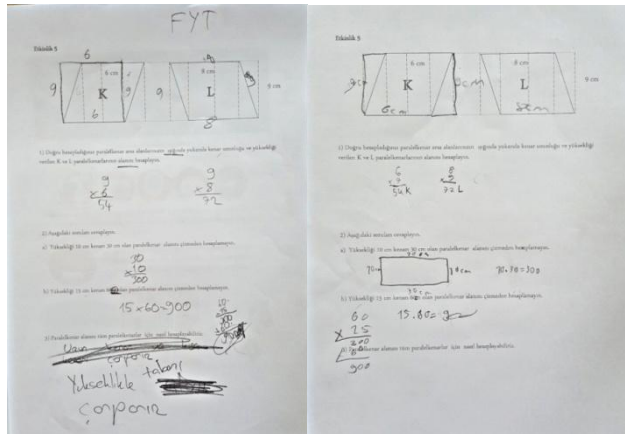 FYT
Etkinlik 5
6
8 cm
9
K
9
6
9
8 cm
L
9 cm
8
1) Doğru hesapladığınız paralelkenar ana alanlarınızın ışığında yukarıda kenar uzunluğu ve yüksekliği
verilen K ve L paralelkenarlarının alanını hesaplayın.
9
x6
54
9
x8
72
2) Aşağıdaki soruları cevaplayın.
a) Yüksekliği 10 cm kenarı 30 cm olan paralelkenar alanını çizmeden hesaplamayın.
30
x10
300
b) Yüksekliği 15 cm kenarı olan paralelkenar alanını çizmeden hesaplamayın.
15x60=900
3) Paralelkenar alanını tüm paralelkenarlar için nasıl hesaplayabiliriz.
Yükseklikle tabanı
Çarparız
Etkinlik 5
9cm
6 cm
K
6cm
9cm
8 cm
L
8cm
9 cm
1) Doğru hesapladığınız paralelkenar ana alanlarınızın ışığında yukarıda kenar uzunluğu ve yüksekliği
verilen K ve L paralelkenarlarının alanını hesaplayın.
54K
72L
2) Aşağıdaki soruları cevaplayın.
a) Yüksekliği 10 cm kenarı 30 cm olan paralelkenar alanını çizmeden hesaplamayın.
10cm
30cm
10.30=300
b) Yüksekliği 15 cm kenarı olan paralelkenar alanını çizmeden hesaplamayın.
60
x 15
300
900
3) Paralelkenar alanını tüm paralelkenarlar için nasıl hesaplayabiliriz.